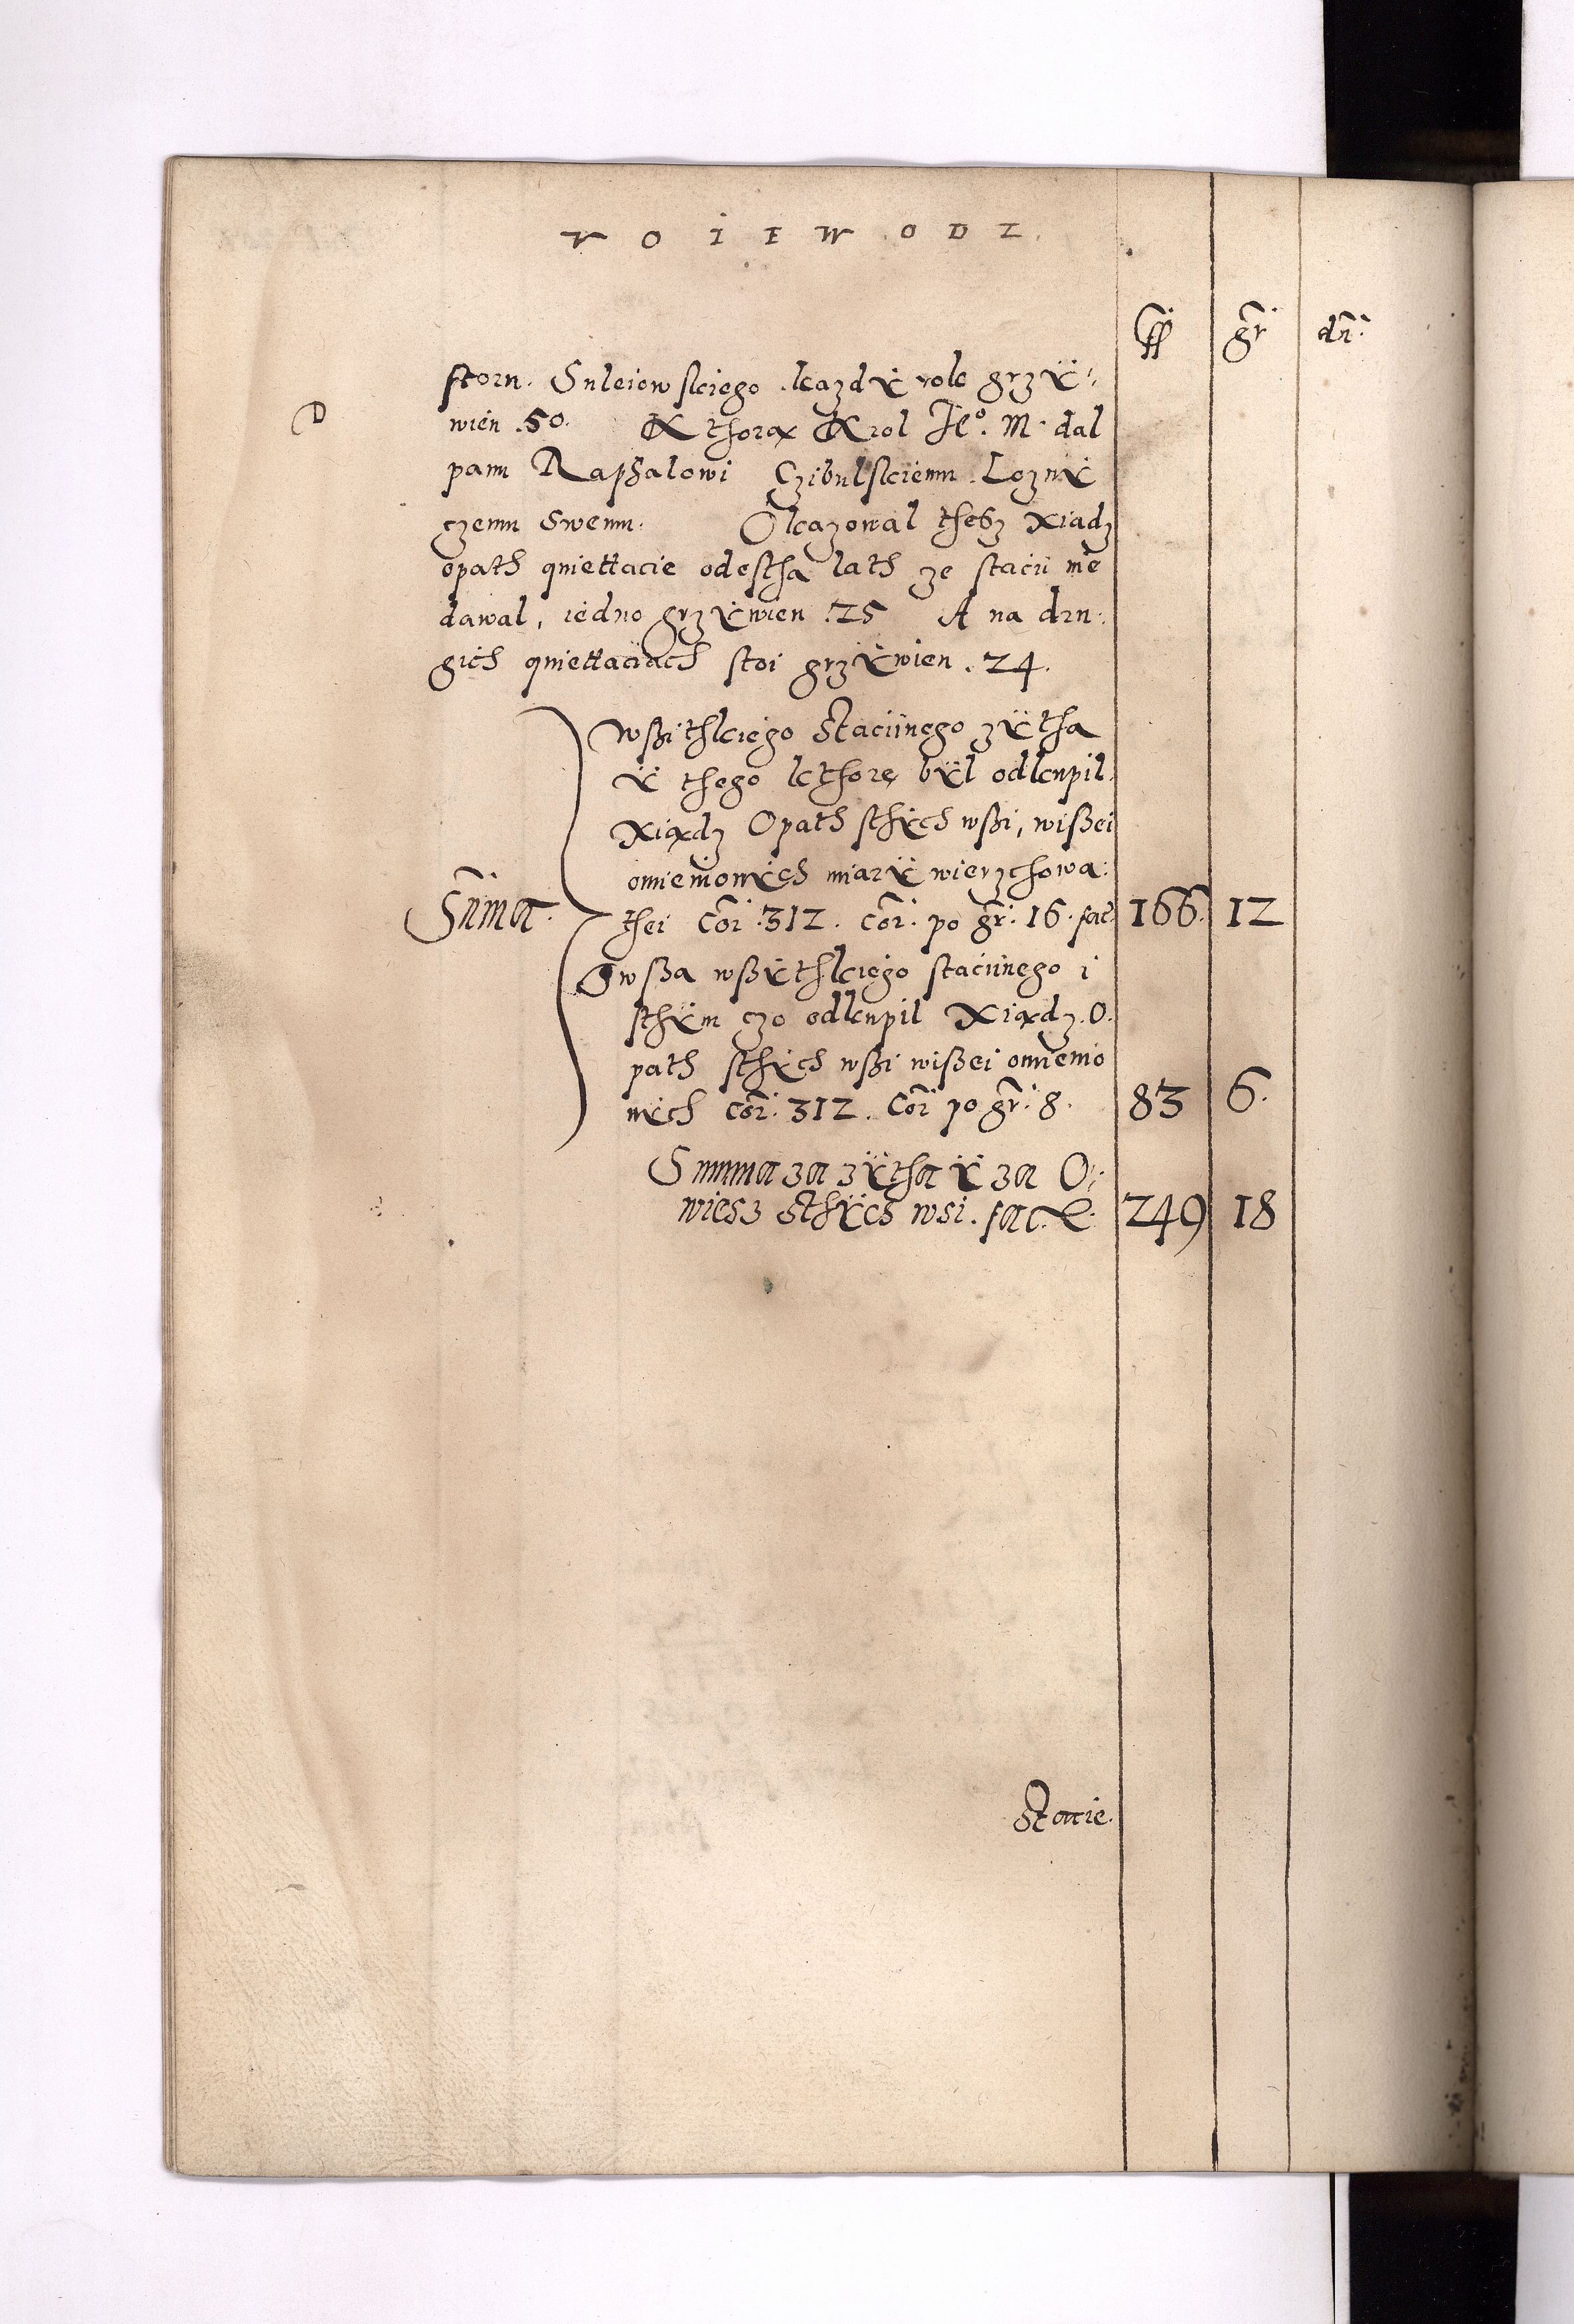 VOIEWODZ.
ff gr dn:
storu. Suleiowskiego každy rok grzÿ:
D wien .50. Kthorą Krol Je°. M. dal
panu Raphalowi Czibulskiemu. Lożnÿ
czemu Swemu. Okazowal thesz Xiadz
opath quiettacie odestha lath ze stacii nie
dawal, iedno grzÿwien .25 A na dru:
gich quiettaciach stoi grzÿwien . 24.
Wßithkiego Staciinego zÿtha
ÿ thego kthore bÿl odkupil.
Xiądz Opath sthÿch wßi, wißei
omienionÿch miarÿ wierzchowa:
Summa. thei Cor. 312. Cor. po gr. 16. fac. 166. 12
Owßa wßÿthkiego staciinego i
sthÿm czo odkupil Xiądz. O.
path sthÿch wßi wißei omienio
nÿch Cor. 312. Cor po gr. 8. 83 6.
Summa za zÿtha ÿ za O:
wiesz Sthÿch wsi. fac. 249 18
Stacie.